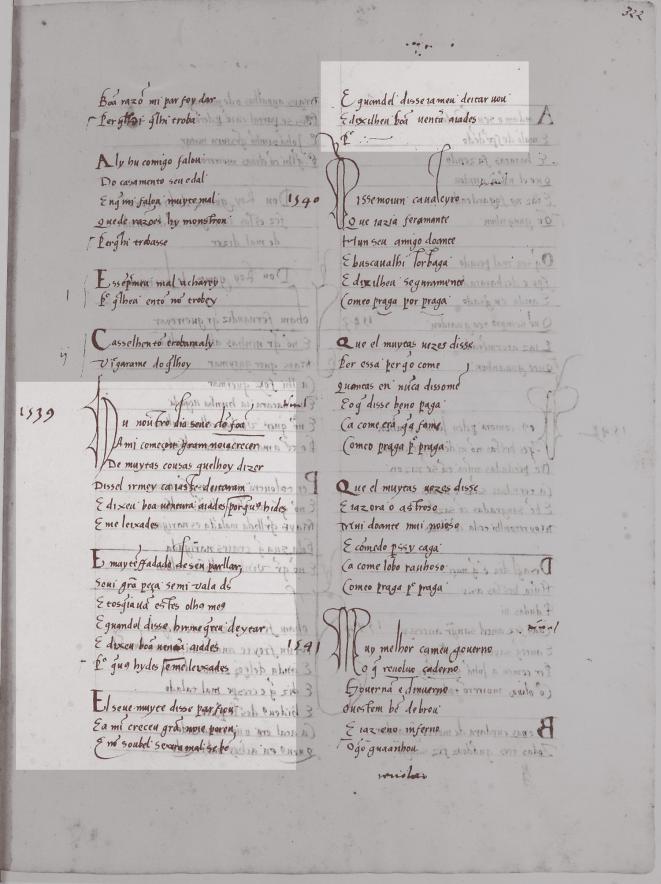 322
Boã razõ mi par foy dar
Per q̃lhi q̃lhi troba
Aly hu comigo falou
Do casamento seu edal
En q̃ mi falou muyte mal
Quede razões hy monstrou
Per q̃lhi trobasse
E sse p̃ meu mal uchorey
P̃ q̃lhen entõ nõ trobey
Casselhento trobaraaly
Vĩgarame do q̃lhoy
1539
Nu nou tro dia seue dõ foã
A mi começou gram noia crecer
De muytas cousas quelhoy dizer
Dissel irmey ca iasse deitaram
E dixeu boa uentura aiades por que hides
E me leixades
E muyte fadade deseu parllar
Soui grã peça se mi vala d̃s
E tosqiauã estes olhꝯ meꝯ
E quandel disse, hirme q̃reu deytar
E dixeu boã uentura aiades
P̃ que hydes e me leixades
El seue muyte disse parfiou
E a mi creceu grã noie poren
E nõ soubel se xera mal se bẽ
E quandel disse iameu deitar uou
E dixilheu boã uentã aiades
P̃
1540
Dissemoiun caualeyro
Que iazia feramante
Hun seu amigo doante
E buscaualhi lorbaga
E dixilheu seguramente
Comeo praga por praga
Que el muytas uezes disse
Per essa per q̃o come
Quantas en nũca dissome
E o q̃ disse beno paga
Ca come can q̃a fame
Comeo praga p̃ praga
Que el muytas uezes disse
E iazora o astroso
Mui doante mui noioso
E comedo p ssy caga
Ca come lobo rauhoso
Comeo praga p̃ praga
1541
Muy melhor cameu gouerno
O q̃ reuolue caderno
Gouerna e dinuerno
Questem bẽ debrou
E iazeno inferno
O q̃o guaanhou